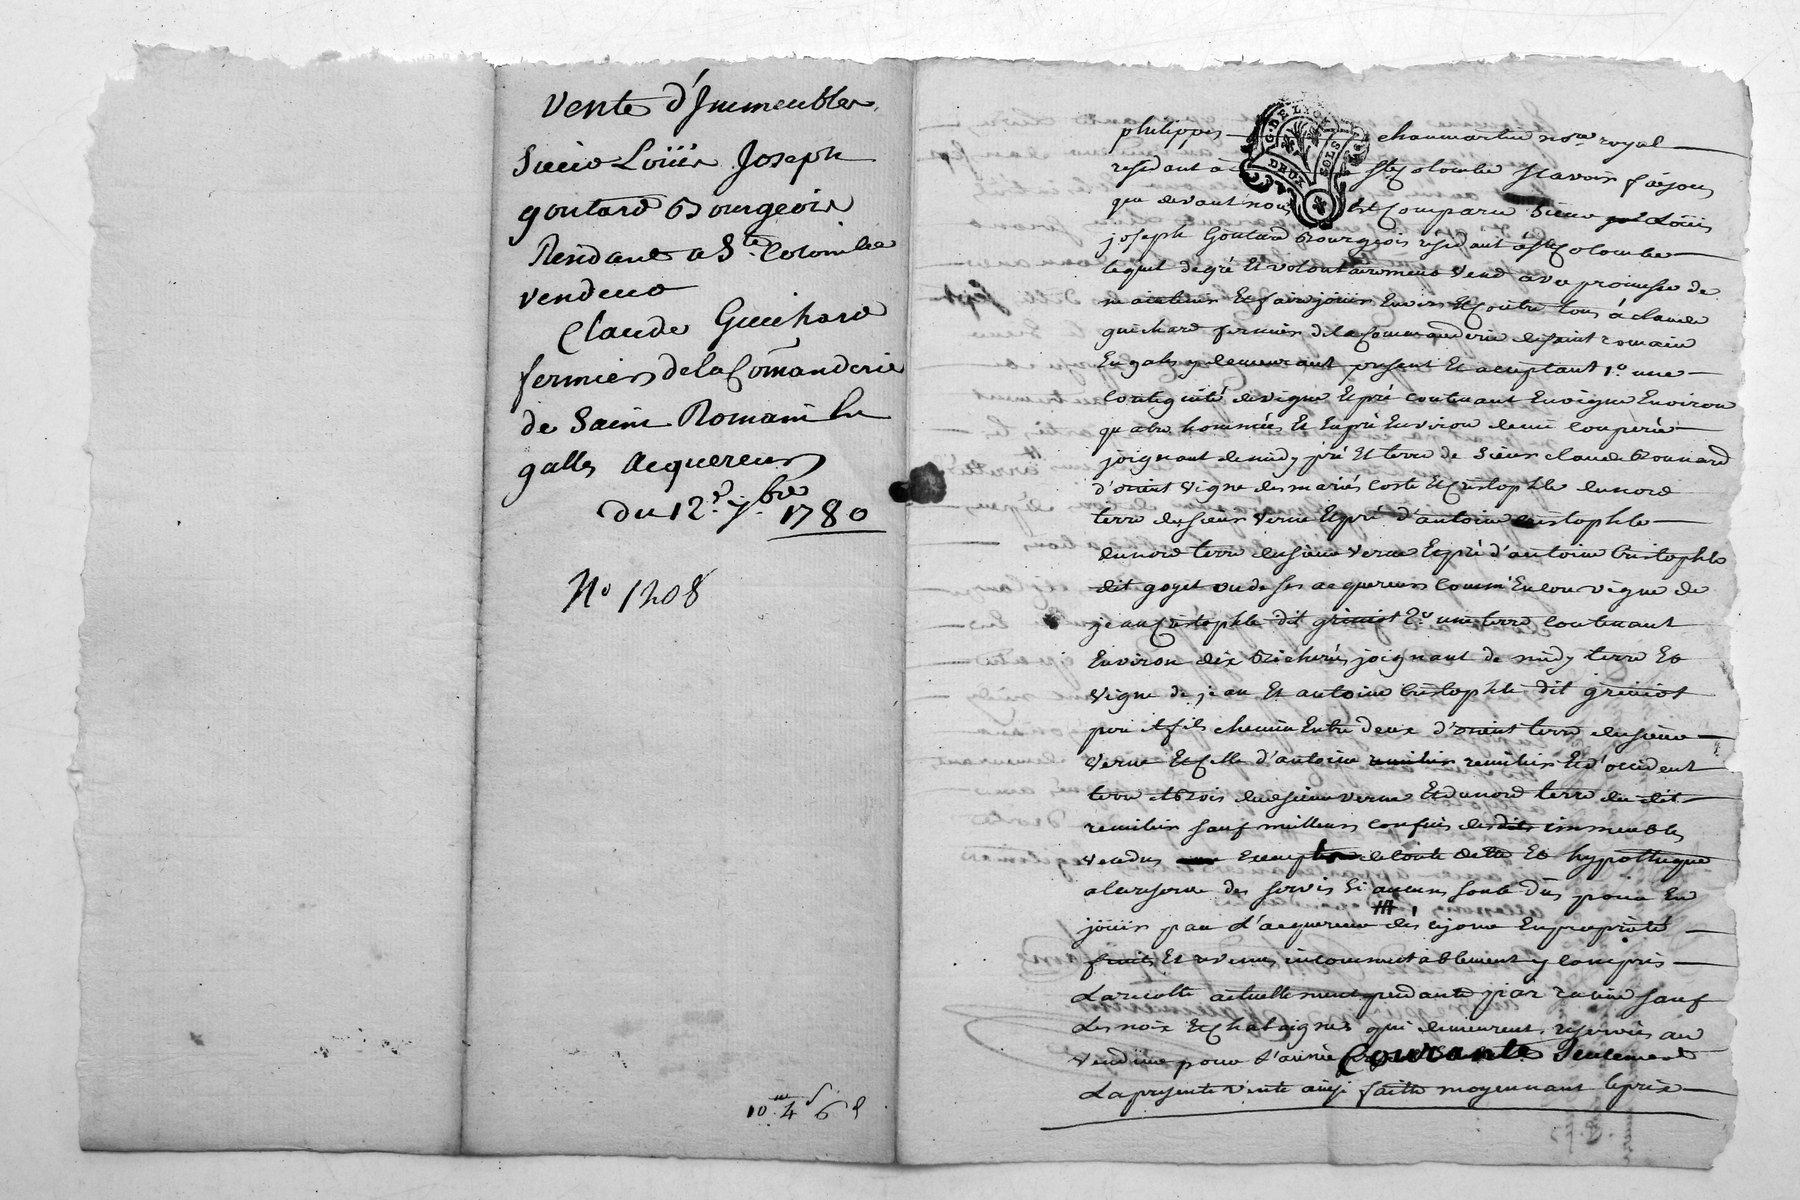 Vente d'Immeubles
Sieur Loüis Joseph
goutard Bourgeois
Residant a Ste. Colombe
vendeur
Claude Guichard
fermier de la Comanderie
de Saint Romain En
galles Acquereur
du 12e. 7bre. 1780
No 1208
10 4 6
G. DE LYON
DEUX SOLS
philippe chaumartin nore. royal
residant à Ste Colombe Scavoir faisons
que devant nous Est Comparu Sieur Loüis
joseph Goutard Bourgeois résidant à Ste Colombe
lequel de gré Et volontairement vend avec promesse de
maintenir Et faire joüir Envers Et Contre tous à claude
guichard fermier de la Commanderie de saint romain
En galles y demeurant present Et acceptant 1o. une
Contiguité de vigne Et pré contenant En vigne Environ
quatre hommées Et En pré Environ demi couperée
joignant de midy pré Et terre de Sieur claude Bonnard
d'orient vigne des mariés Coste Et Cristophle du nord
terre du sieur verne Et pré d'antoine cristophle
du nord terre du sieur verne Et pré d'antoine Cristophle
dit goyet ou de ses acquereurs Comm' Encor vigne de
jean Cristophle dit griniot 2o une terre contenant
Environ dix Bicherées joignant de midy terre Et
vigne de jean Et antoine Cristophle dit griniot
pere et fils chemin Entre deux d'orient terre du sieur
verne Et Celle d'antoine remilier Et d'occident
terre et Bois du dit sieur verne Et du nord terre du dit
remilier sauf meilleurs confins des dits immeubles
vendus Exempts de toute dette Et hypothèque
a la reserve des servis Si aucuns sont dûs pour En
joüir par L'acquereur dès cejour En proprieté
fruits Et revenus incommutablement y compris
La recolte actuellement pendante par racine sauf
Les noix Et Chataignes qui demeurent reservées au
vendeur pour L'année Courante Seulement
La presente vente ainsi faitte moyennant le prix